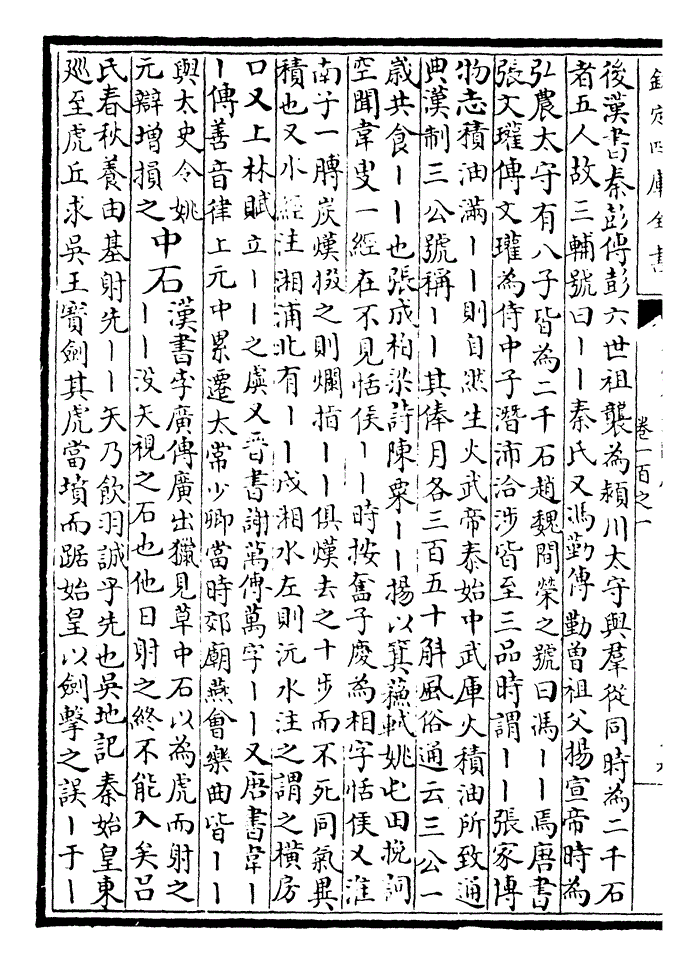 欽定四庫全書
卷一百之一
後漢書秦彭傳彭六世祖襲為潁川太守與羣從同時為二千石
者五人故三輔號曰丨丨秦氏又馮勤傳勤曾祖父揚宣帝時為
弘農太守有八子皆為二千石趙魏間榮之號曰馮丨丨焉唐書
張文瓘傳文瓘為侍中子潛沛洽涉皆至三品時謂丨丨張家傳
物志積油滿丨丨則自然生火武帝泰始中武庫火積油所致通
典漢制三公號稱丨丨其俸月各三百五十斛風俗通云三公一
歲共食丨丨也張成柏梁詩陳粟丨丨揚以箕蘇軾姚屯田挽詞
空聞韋叟一經在不見恬侯丨丨時按奮子慶為相字恬侯又淮
南子一膊炭熯掇之則爛指丨丨俱熯去之十步而不死同氣異
積也又水經注湘浦北有丨丨戍湘水左則沅水注之謂之橫房
口又上林賦立丨丨之虡又晉書謝萬傳萬字丨丨又唐書韋丨
丨傳善音律上元中累遷太常少卿當時郊廟燕會樂曲皆丨丨
與太史令姚
元辯增損之
中石
漢書李廣傳廣出獵見草中石以為虎而射之
丨丨没矢視之石也他日射之終不能入矣吕
氏春秋養由基射先丨丨矢乃飲羽誠乎先也吳地記秦始皇東
廵至虎丘求吳王寳劍其虎當墳而踞始皇以劍擊之誤丨于丨